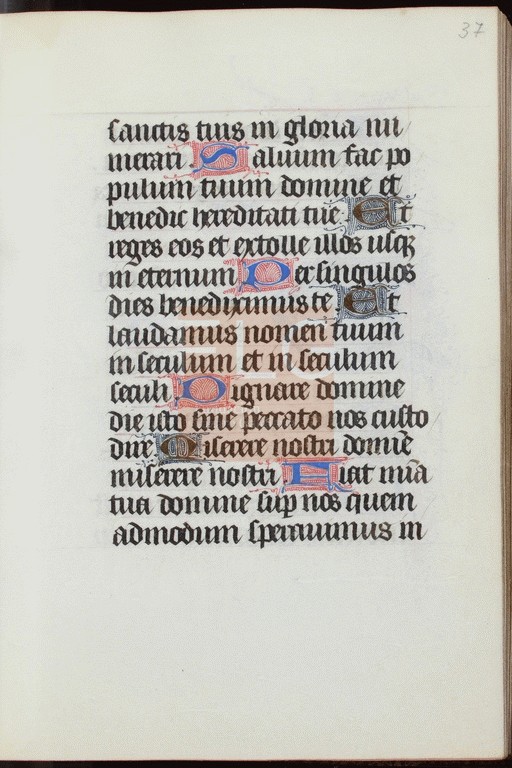 37
sanctis tuis in gloria nu
merari Saluum fac po
pulum tuum domine et
benedic hereditati tue Et
reges eos et extolle illos usqꝫ
in eternum Per singulos
dies benedicimus te Et
laudamus nomen tuum
in seculum et in seculum
seculi Dignare domine
die isto sine peccato nos custo
dire Miserere nostri domiē
miserere nostri Fiat mīa
tua domine sup nos quem
admodum sperauimus in